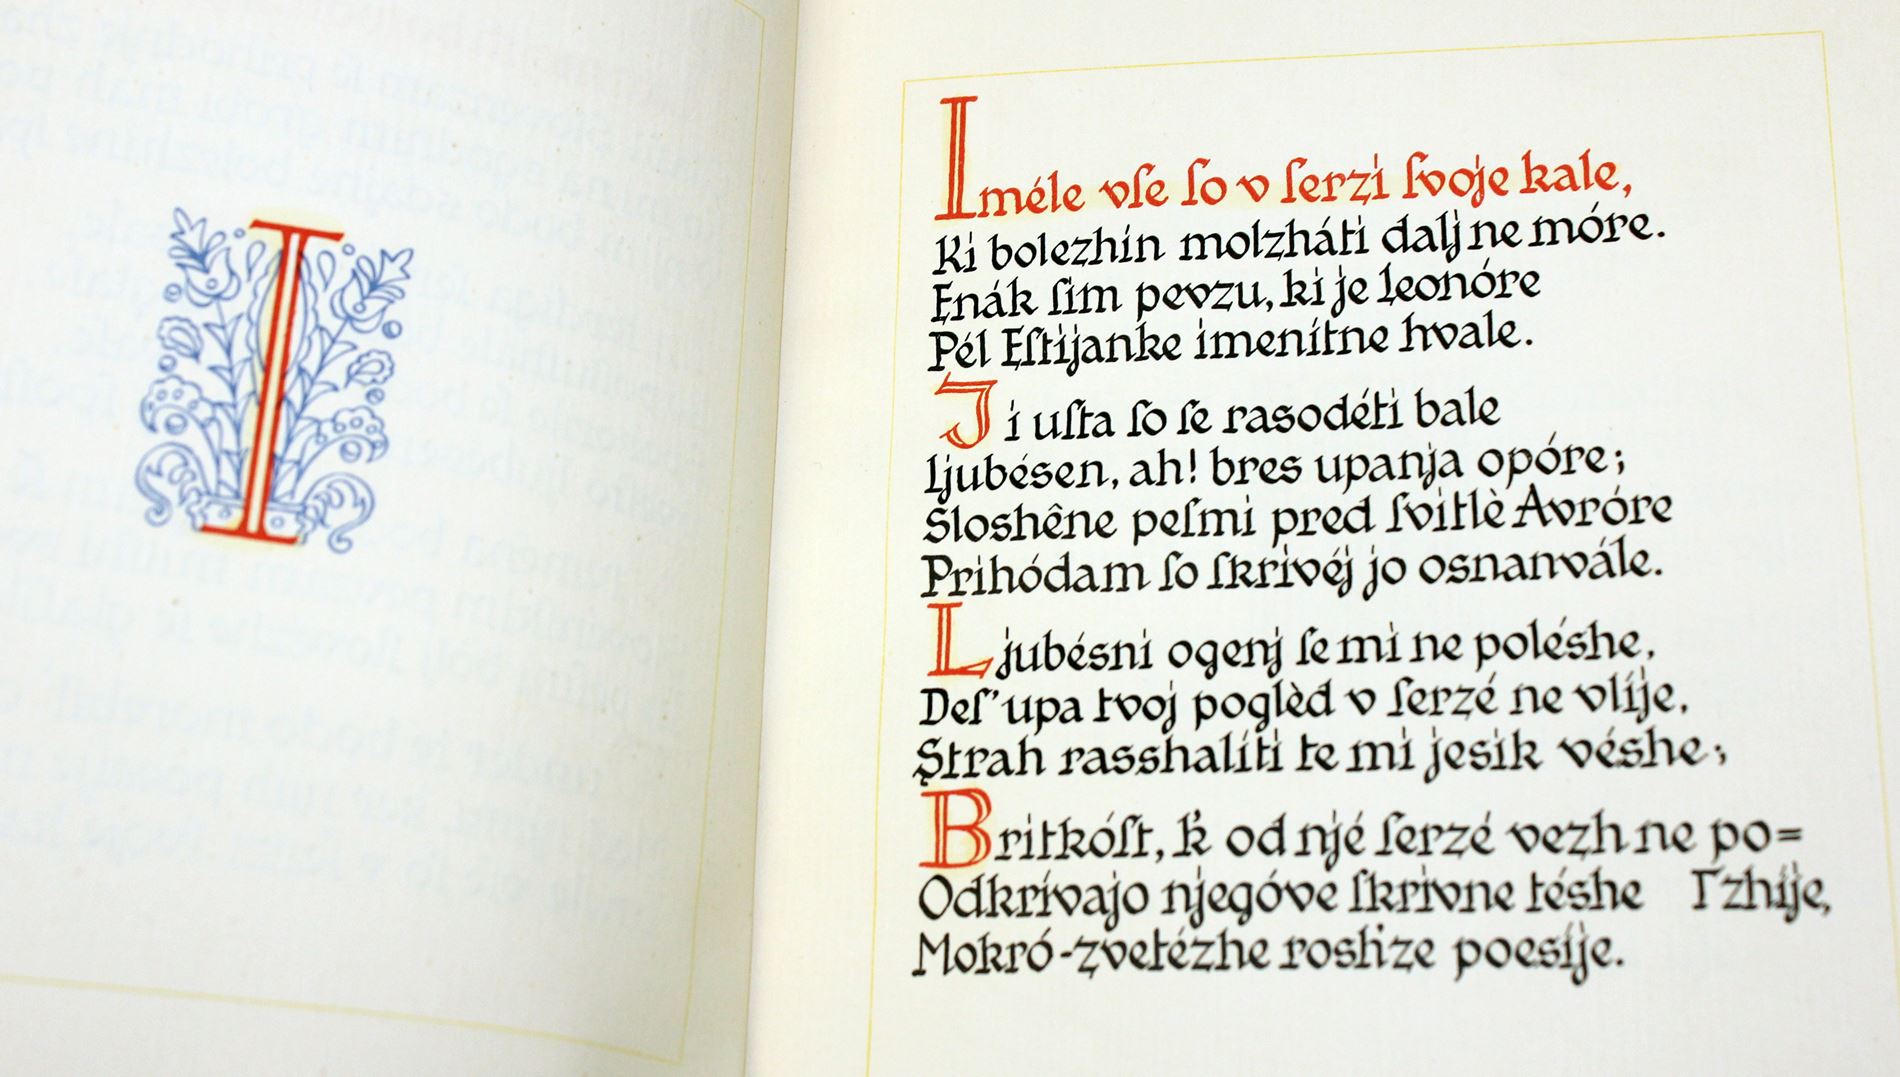 I
Iméle vſe ſo v ſerzi ſvoje kale,
Ki bolezhin molzháti dalj ne móre.
Enák ſim pevzu, ki je Leonóre
Pél Eſtijanke imenítne hvale.
Ji uſta ſo ſe rasodéti bale
Ljubésen, ah! bres upanja opóre;
Sloshêne peſmi pred ſvitlè Avróre
Prihódam ſo ſkrivéj jo osnanvále.
Ljubésni ogenj ſe mi ne poléshe,
Deſ' upa tvoj poglèd v ſerzé ne vlíje.
Strah rasshalíti te mi jesik véshe;
Britkóſt, k' od njé ſerzé vezh ne po=
Odkrívajo njegóve ſkrivne téshe ſzhíje,
Mokró-zvetézhe roshze poesíje.